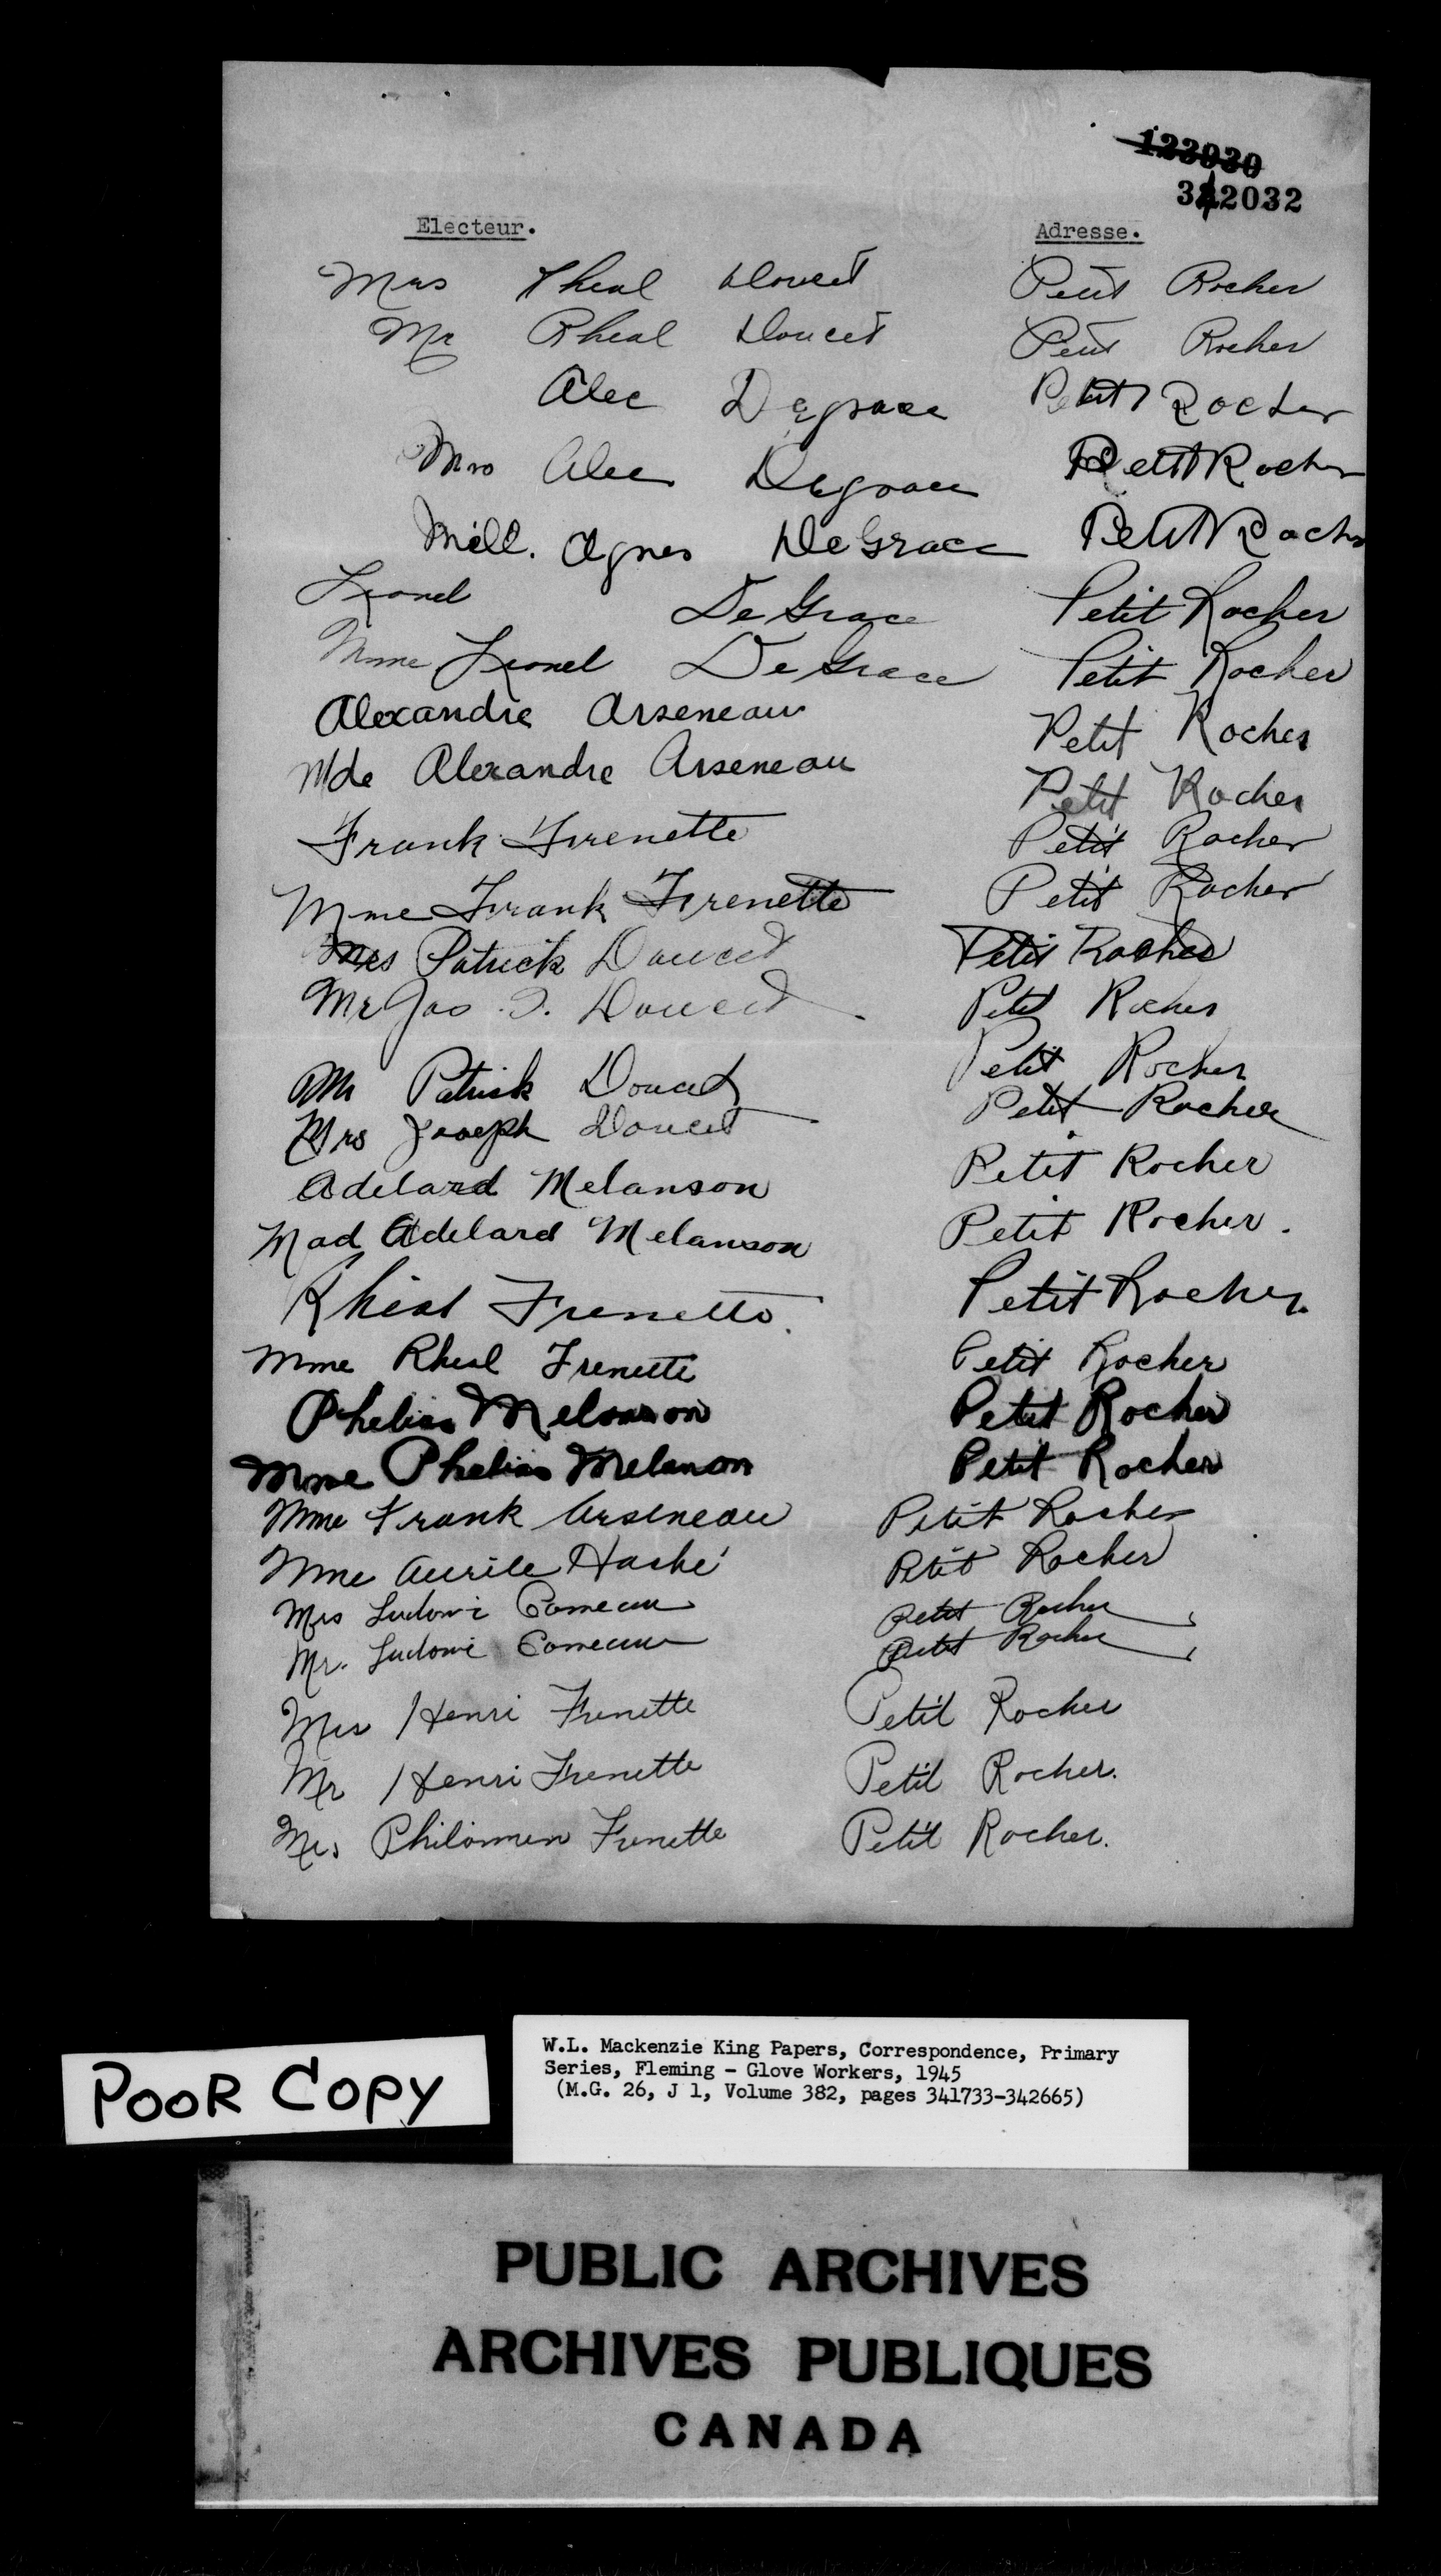 123030
342032
Electeur. Adresse.
Mrs Rheal Doucet Petit Rocher
Mr Rheal Doucet Petit Rocher
Alec Degrace Petit Rocher
Mrs Alec Degrace Petit Rocher
Mell. Agnes DeGrace Petit Rocher
Leonel DeGrace Petit Rocher
Mme Leonel DeGrace Petit Rocher
Alexandre Arseneau Petit Rocher
Mde Alexandre Arseneau Petit Rocher
Frank Frenette Petit Rocher
Mme Frank Frenette Petit Rocher
Mrs Patrick Doucet Petit Rocher
Mr Jos Doucet Petit Rocher
Mr Patrick Doucet Petit Rocher
Mrs Joseph Doucet Petit Rocher
Adelard Melanson Petit Rocher
Mad Adelard Melanson Petit Rocher.
Rheal Frenette. Petit Rocher.
Mme Rheal Frenette Petit Rocher
Phelias Melanson Petit Rocher
Mme Phelias Melanson Petit Rocher
Mme Frank Arseneau Petit Rocher
Mme Aurile Haché Petit Rocher
Mrs Ludovic Comeau Petit Rocher
Mr. Ludovic Comeau Petit Rocher
Mrs Henri Frenette Petit Rocher
Mr Henri Frenette Petit Rocher.
Mrs Philomen Frenette Petit Rocher.
POOR COPY
W.L. Mackenzie King Papers, Correspondence, Primary
Series, Fleming - Glove Workers, 1945
(M.G. 26, J 1, Volume 382, pages 341733-342665)
PUBLIC ARCHIVES
ARCHIVES PUBLIQUES
CANADA